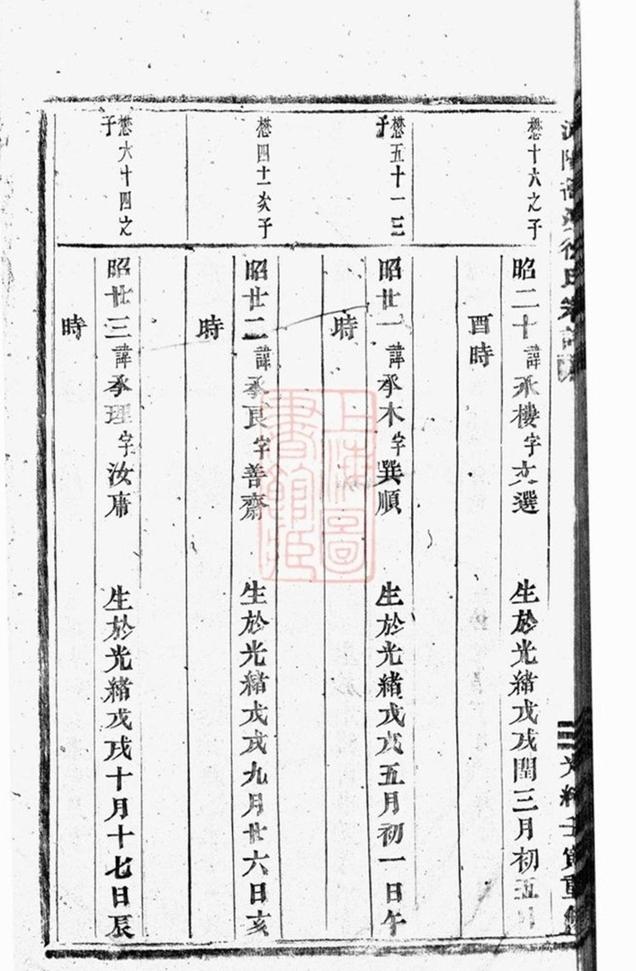 懋十六之子
昭二十 諱承樓字文選 生於光緒戊戌閏三月初五日
酉時
懋五十一三
子
昭廿一 諱承木字巽順 生於光緒戊戌五月初一日午
時
懋四十一次子
昭廿二 諱承良字善齋 生於光緒戊戌九月廿六日亥
時
懋六十四之
子
昭廿三 諱承理字汝庸 生於光緒戊戌十月十七日辰
時
上海圖書館藏
光緒壬寅重修